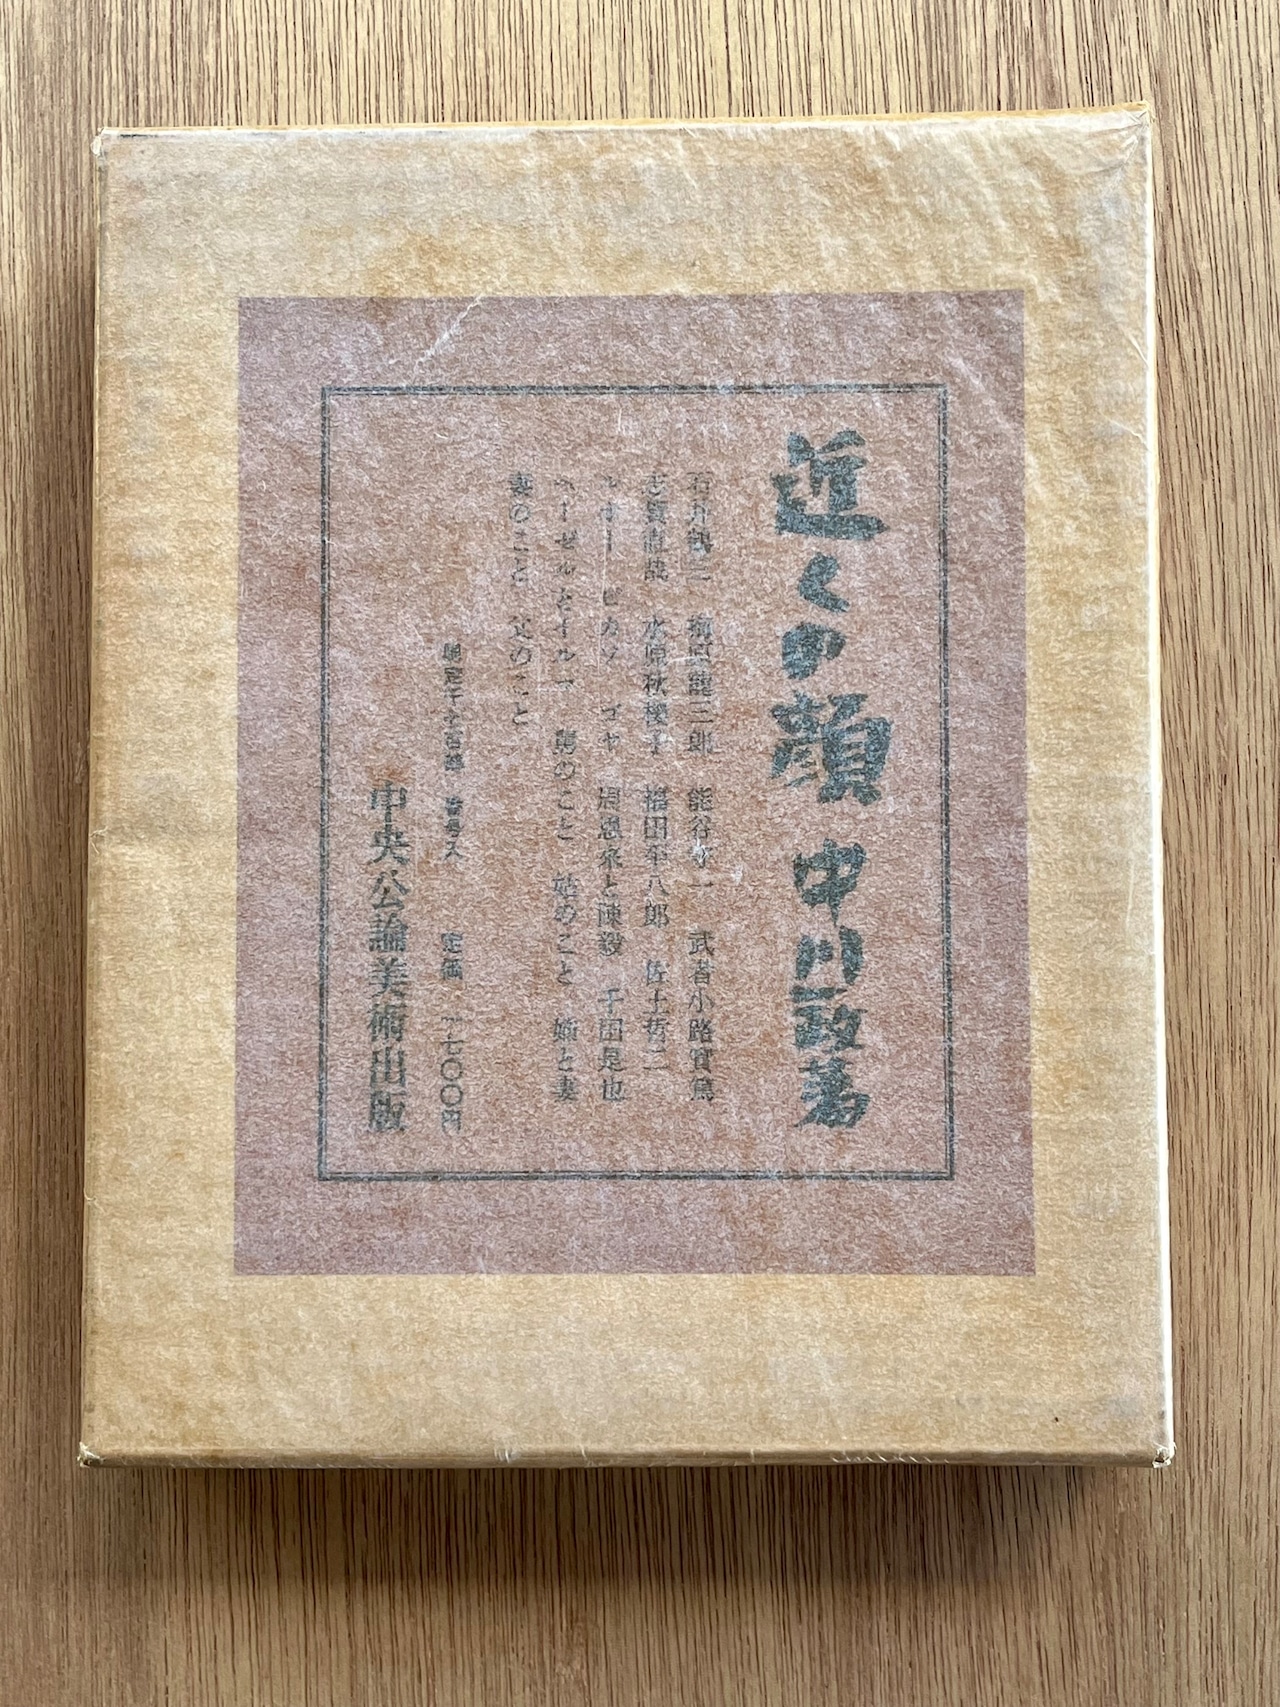 近くの顔 中川一政著
石井鶴三 梅原龍三郎 熊谷守一 武者小路實篤
志賀直哉 水原秋櫻子 福田平八郎 佐土哲二
ピカソ ゴヤ 周恩來と陳毅 千田是也
ヘーゼルとイルマ 甥のこと 姑のこと 姉と妻
妻のこと 父のこと
限定千七百部 番号入 定価 一七〇〇円
中央公論美術出版